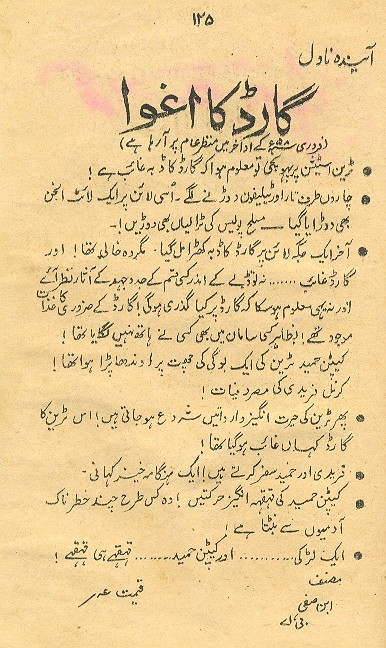 ۱۲۵
آیندہ ناول
گارڈ کا اغوا
(فروری ۵۸ء کے اواخر میں منظر عام پر آ رہا ہے)
● ٹرین سٹیشن پر پہونچی تو معلوم ہوا کہ گارڈ کا ڈبہ غائب ہے!
● چاروں طرف تار اور ٹیلیفون دوڑنے لگے۔ اُسی لائن پر ایک لائٹ انجن
بھی دوڑایا گیا — مسلح پولیس کی ٹرالیاں بھی دوڑیں!۔
● آخر ایک جگہ لائن پر گارڈ کا ڈبہ کھڑا مل گیا۔ مگر وہ خالی تھا! اور
گارڈ غائب ....... نہ تو ڈبے کے اندر کسی قسم کے جدوجہد کے آثار نظر آئے
اور نہ یہی معلوم ہو سکا کہ گارڈ پر کیا گذری ہوگی! گارڈ کے ضروری کاغذات
موجود تھے! بظاہر کسی سامان میں بھی کسی نے ہاتھ نہیں لگایا تھا!
کیپٹن حمید ٹرین کی ایک بوگی کی چھت پر اوندھا پڑا ہوا تھا!
کرنل فریدی کی مصروفیات!
● پھر ٹرین کی حیرت انگیز وارداتیں شروع ہو جاتی ہیں! اس ٹرین کا
گارڈ کہاں غائب ہو گیا تھا!
● فریدی اور حمید سفر کرتے ہیں! ایک ہنگامہ خیز کہانی۔
● کیپٹن حمید کی قہقہہ انگیز حرکتیں! وہ کس طرح چند خطرناک
آدمیوں سے نپٹتا ہے!
● ایک لڑکی............ اور کیپٹن حمید......... قہقہے ہی قہقہے!
مصنف
ابن صفی
بی اے
قیمت